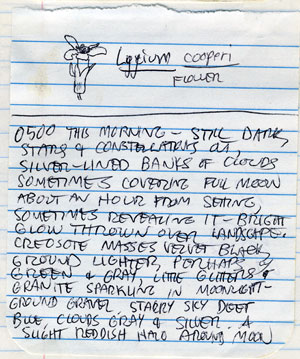 Lycium cooperi
FLOWER
0500 THIS MORNING - STILL DARK,
STARS & CONSTELLATIONS OUT,
SILVER-LINED BANKS OF CLOUDS
SOMETIMES COVERING FULL MOON
ABOUT AN HOUR FROM SETTING,
SOMETIMES REVEALING IT - BRIGHT
GLOW THROWN OVER LANDSCAPE.
CREOSOTE MASSES VELVET BLACK,
GROUND LIGHTER, PERHAPS
GREEN & GRAY, LITTLE GLITTERS OF
GRANITE SPARKLING IN MOONLIGHT -
GROUND GRAVEL. STARRY SKY DEEP
BLUE, CLOUDS GRAY & SILVER. A
SLIGHT REDDISH HALO AROUND MOON